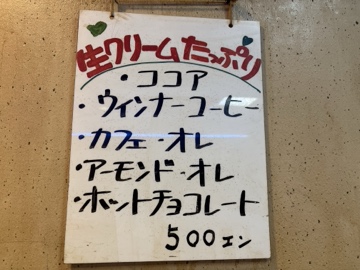 生クリームたっぷり
・ココア
・ウィンナーコーヒー
・カフェ・オレ
・アーモンド・オレ
・ホットチョコレート
500エン